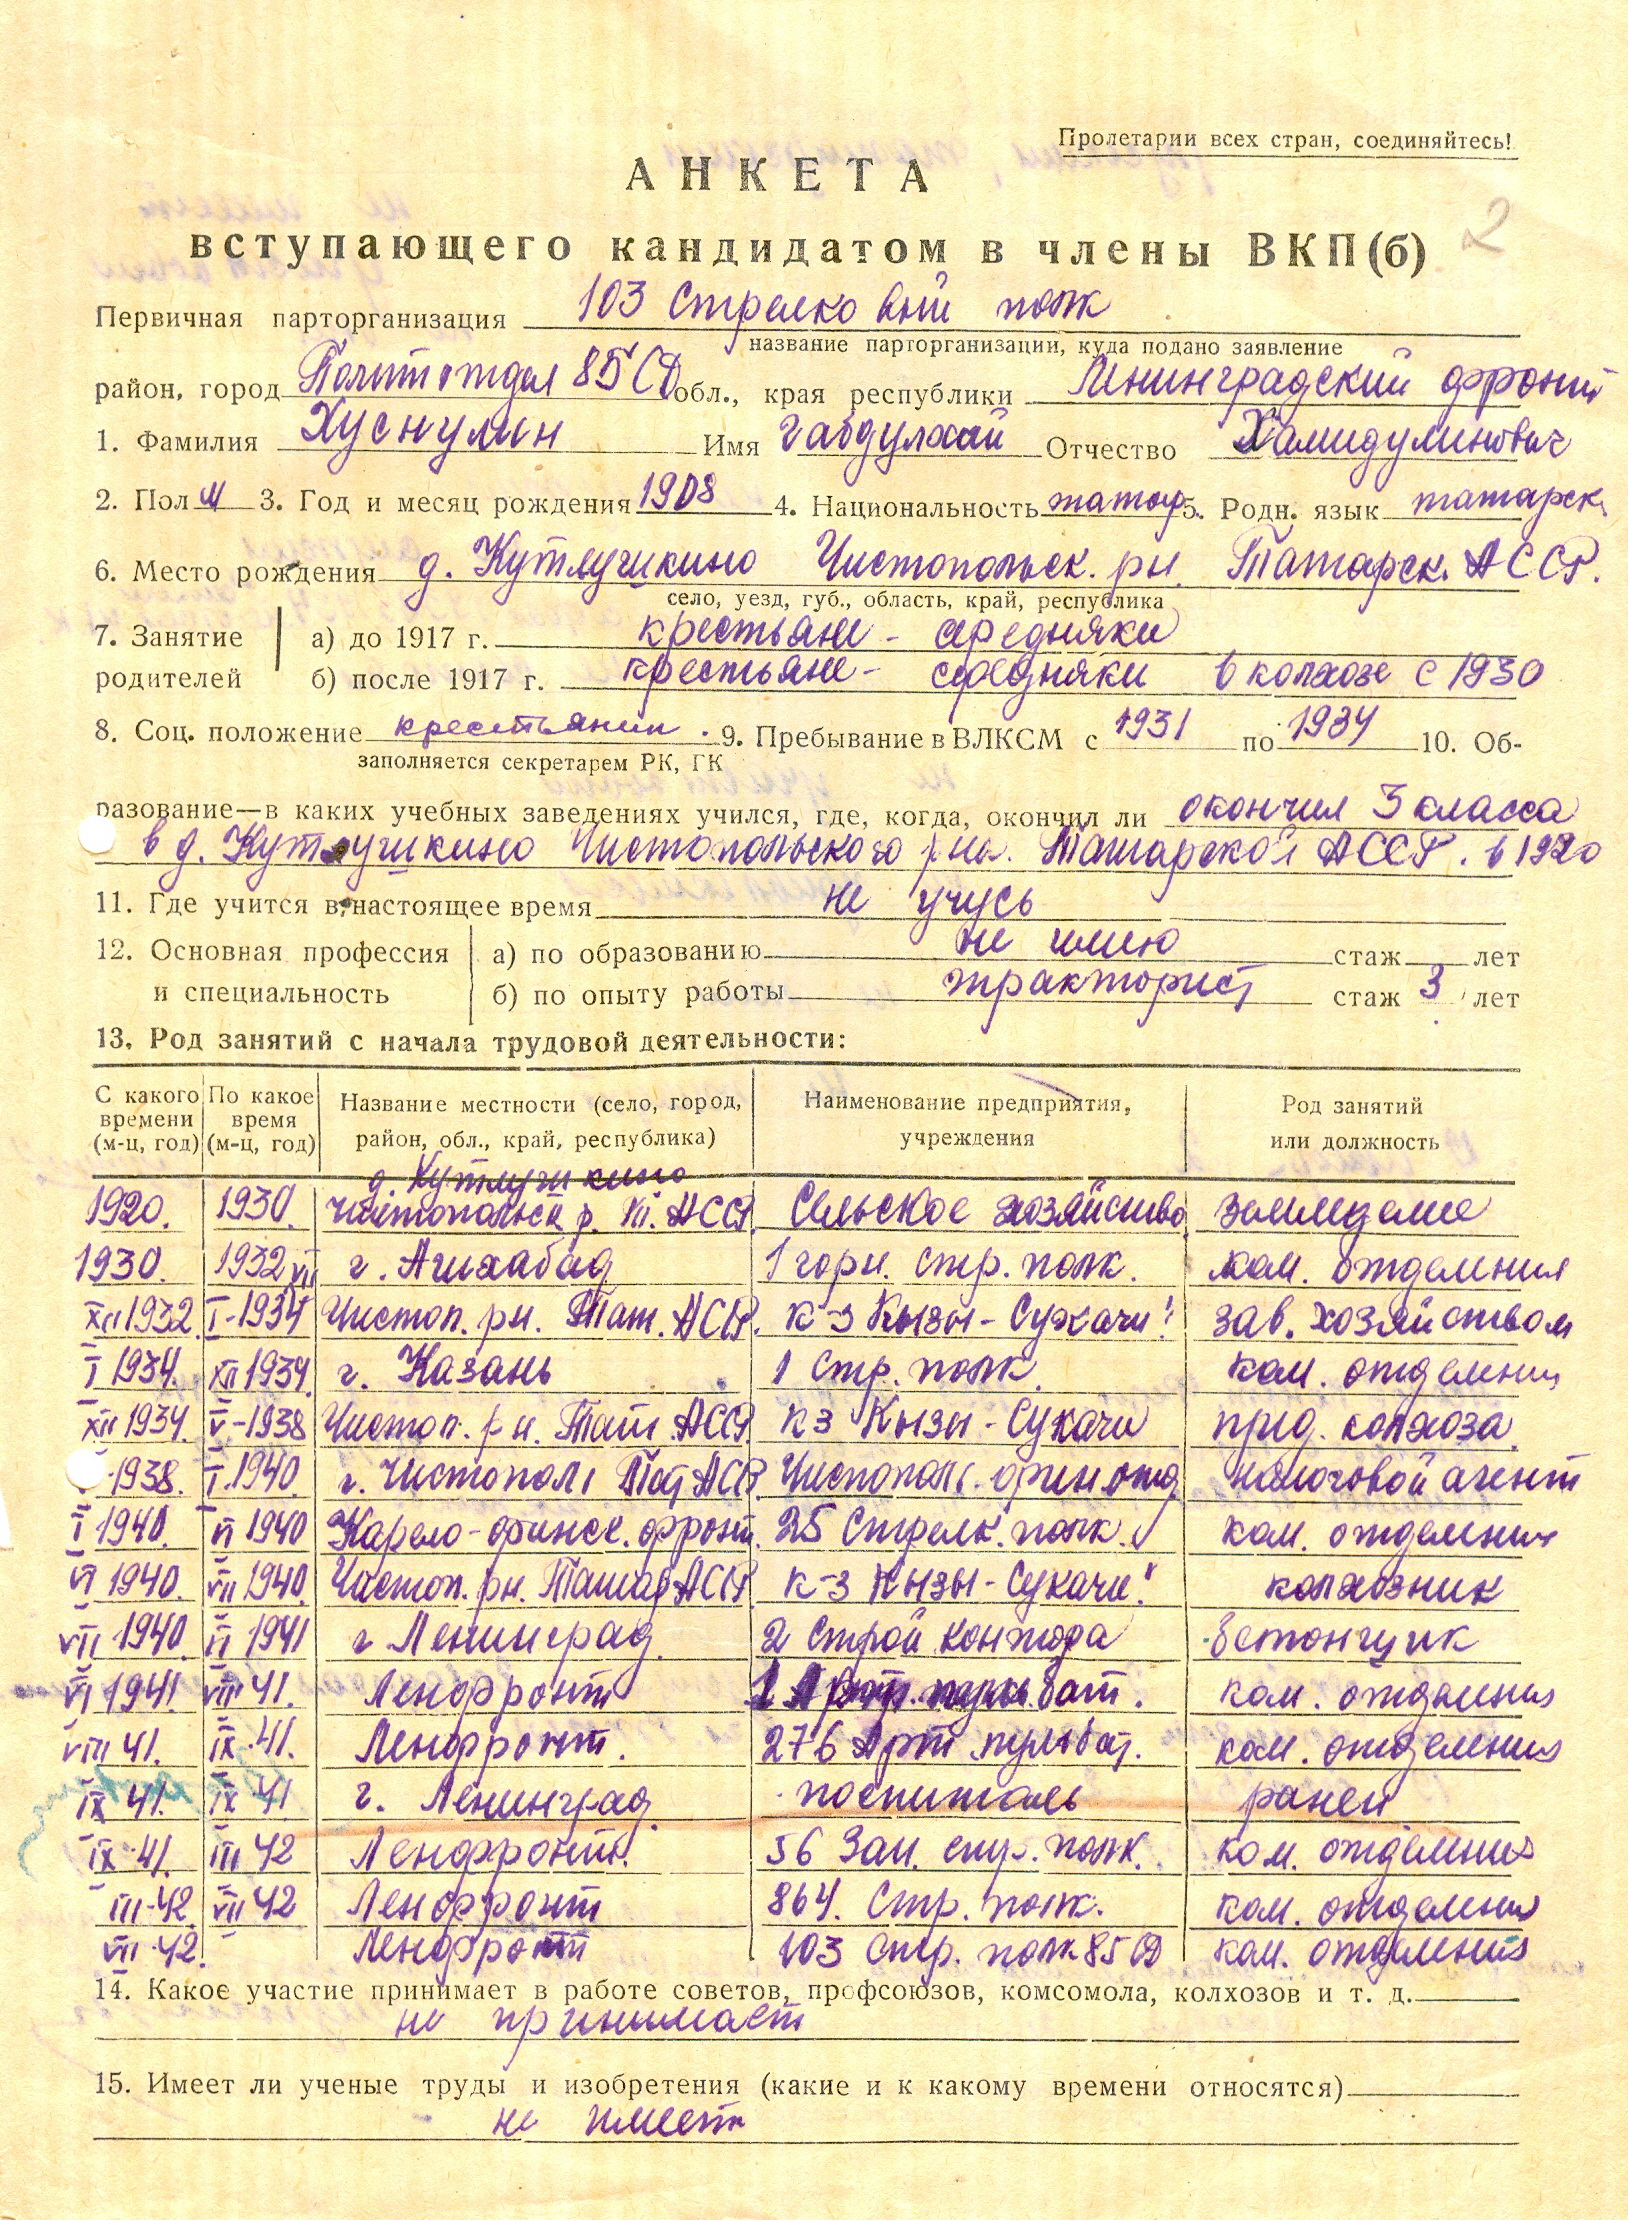 Пролетарии всех стран, соединяйтесь!
АНКЕТА
вступающего кандидатом в члены ВКП(б)
2
Первичная парторганизация 103 Стрелковый полк
название парторганизации, куда подано заявление
район, город Политотдел 85 СД обл., края республики Ленинградский фронт
1. Фамилия Хуснулин Имя Габдулхай Отчество Хамидулинович
2. Пол М 3. Год и месяц рождения 1908 4. Национальность татар 5. Родн. язык татарск.
6. Место рождения д. Кутлушкино Чистопольск. рн. Татарск. АССР.
село, уезд, губ., область, край, республика
7. Занятие родителей а) до 1917 г. крестьяне - середняки
б) после 1917 г. крестьяне - середняки в колхозе с 1930
8. Соц. положение крестьянин. 9. Пребывание в ВЛКСМ с 1931 по 1934 10. Об-
заполняется секретарем РК, ГК
разование—в каких учебных заведениях учился, где, когда, окончил ли окончил 3 класса
в д. Кутлушкино Чистопольского р-на. Татарской АССР. в 1920
11. Где учится в настоящее время не учусь
12. Основная профессия а) по образованию не имею стаж лет
и специальность б) по опыту работы тракторист стаж 3 лет
13. Род занятий с начала трудовой деятельности:
С какого времени (м-ц, год) По какое время (м-ц, год) Название местности (село, город, район, обл., край, республика) Наименование предприятия, учреждения Род занятий или должность
д. Кутлушкино
1920. 1930. Чистопольск р. Т. АССР. Сельское хозяйство земледелие
1930. 1932 XII г. Ашхабад 1 горн. стр. полк. ком. отделения
XII 1932. I-1934 Чистоп. рн. Тат. АССР. к-з Кызы-Сукачи! зав. хозяйством
I 1934. XII 1934. г. Казань 1 стр. полк. ком. отделения
XII 1934. V-1938 Чистоп. рн. Тат. АССР. кз Кызы-Сукачи пред. колхоза
1938. I.1940. г. Чистополь Тат АССР. Чистополь. финотд налоговой агент
I 1940. VI 1940 Карело-финск. фронт. 25 Стрелк. полк. ком. отделения
VI 1940. VII 1940. Чистоп. рн. Татар АССР. к-з Кызы-Сукачи! колхозник
VII 1940. VI 1941 г Ленинград. 2 Строй контора бетонщик
VI 1941. VIII 41. Ленфронт 1 Арт. пульбат. ком. отделения
VIII 41. IX.41. Ленфронт. 276 Арт пульбат. ком. отделения
IX 41. IX 41 г. Ленинград. госпиталь ранен
IX 41. III 42 Ленфронт. 56 Зап. стр. полк. ком. отделения
III-42. VII 42 Ленфронт 864. Стр. полк. ком. отделения
VII-42. Ленфронт 103 стр. полк 85 СД ком. отделения
14. Какое участие принимает в работе советов, профсоюзов, комсомола, колхозов и т. д.
не принимает
15. Имеет ли ученые труды и изобретения (какие и к какому времени относятся)
не имеет